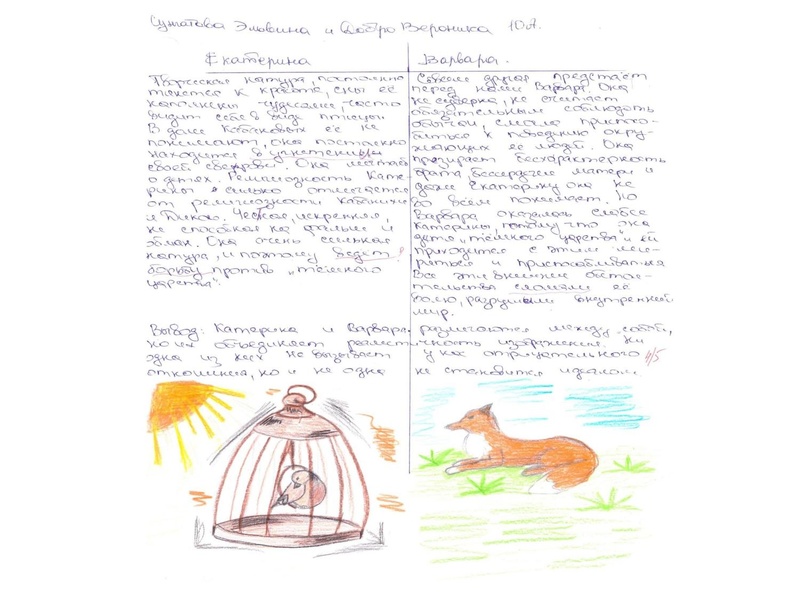 Сунгатова Эльвина и Добро Вероника 10А.
Екатерина
Творческая натура, постоянно
тянется к красоте, сны её
наполнены чудесами, часто
видит себя в виде птицы.
В доме Кабановых её не
понимают, она постоянно
находится в угнетении
своей свекрови. Она мечтает
о детях. Религиозность Кате-
рины сильно отличается
от религиозности Кабанихи
и Дикого. Честная, искренняя,
не способная на фальшь и
обман. Она очень сильная
натура, и поэтому ведёт
борьбу против "тёмного
царства".
Варвара.
Совсем другая предстаёт
перед нами Варвара. Она
не суеверна, не считает
обязательным соблюдать
обычаи, смогла приспосо-
биться к поведению окру-
жающих её людей. Она
презирает бесхарактерность
брата, бессердечие матери и
даже Екатерину она не
во всём понимает. Но
Варвара оказалась слабее
Катерины, потому что она
дитя "тёмного царства" и ей
приходится с этим ми-
риться и приспосабливаться
Все эти внешние обстоя-
тельства сломали её
волю, разрушили внутренний
мир.
Вывод: Катерина и Варвара различаются между собой,
но их объединяет реалистичность изображения. Ни
одна из них не вызывает у нас отрицательного
отношения, но и не одна не становится идеалом.
4/5